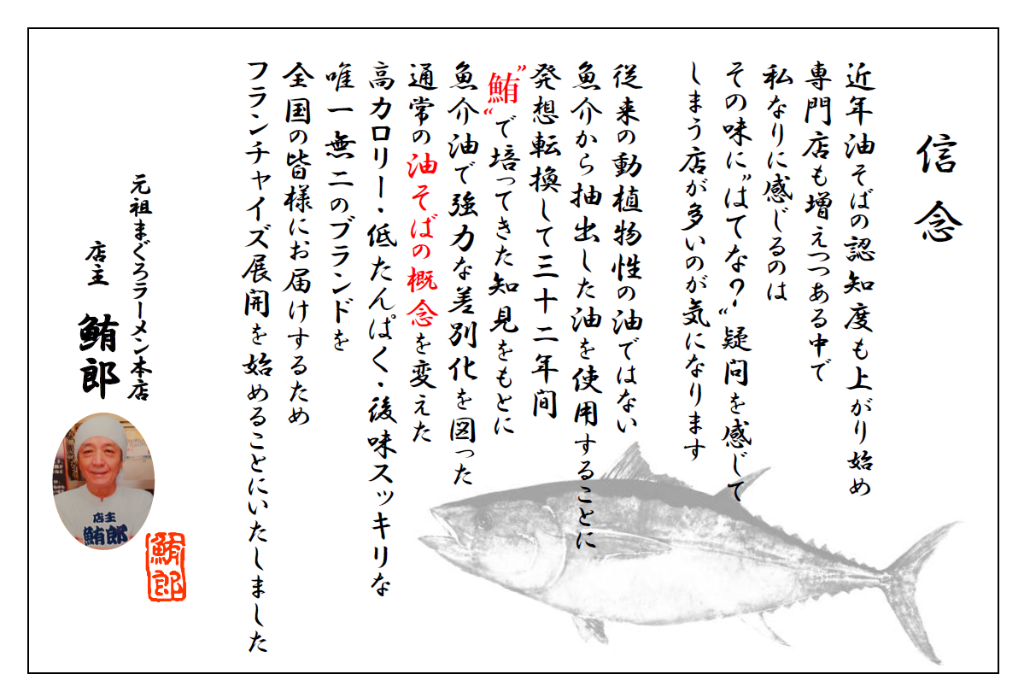 信念
近年油そばの認知度も上がり始め
専門店も増えつつある中で
私なりに感じるのは
その味に"はてな?"疑問を感じて
しまう店が多いのが気になります
従来の動植物性の油ではない
魚介から抽出した油を使用することに
発想転換して三十二年間
"鮪"で培ってきた知見をもとに
魚介油で強力な差別化を図った
通常の油そばの概念を変えた
高カロリー・低たんぱく・後味スッキリな
唯一無二のブランドを
全国の皆様にお届けするため
フランチャイズ展開を始めることにいたしました
元祖まぐろラーメン本店
店主 鮪郎
店主
鮪郎
鮪郎